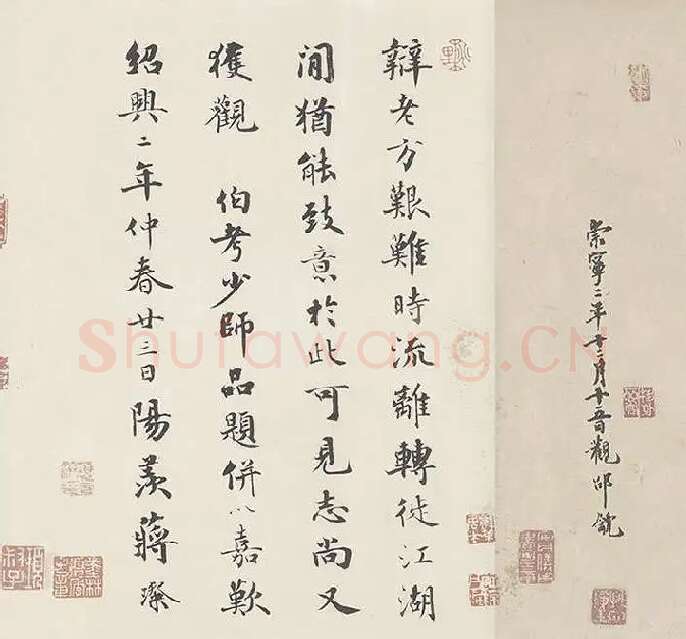 崇寧二年十二月十 觀邵
辯老方艱難時流離轉徙江湖
閒猶能致意於此可見志尚又
獲觀 伯考少師品題併以嘉歎
紹興二年仲春廿三日陽羨蔣璨
Shufawang.CN